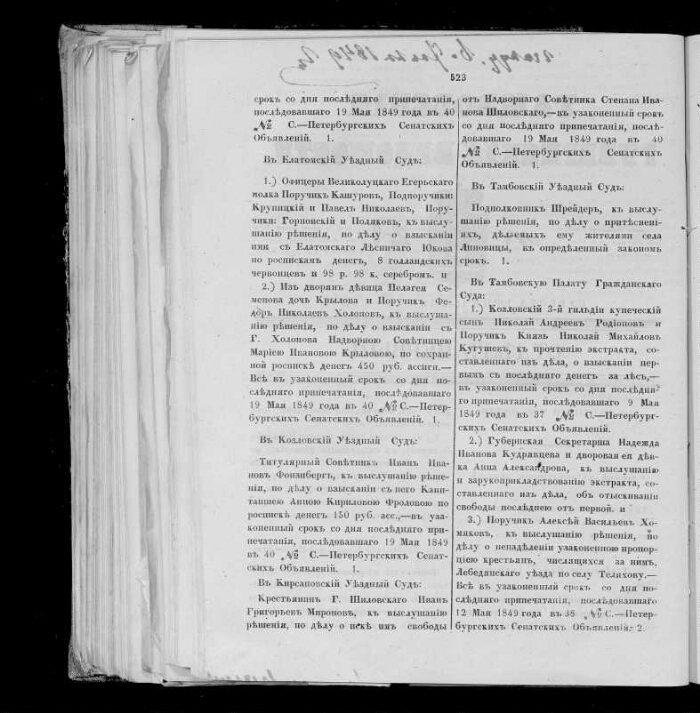 523
срокъ со дня послѣдняго припечатанія,
послѣдовавшаго 19 Мая 1849 года въ 40
№ С.—Петербургскихъ Сенатскихъ
Объявленій. 1.
Въ Елатомскій Уѣздный Судъ:
1.) Офицеры Великолуцкаго Егерьскаго
полка Поручикъ Кашуровъ, Подпоручики:
Крупицкій и Павелъ Николаевъ, Пору-
чики: Горновскій и Поляковъ, къ выслу-
шанію рѣшенія, по дѣлу о взысканіи
ими съ Елатомскаго Лѣсничаго Юкова
по роспискамъ денегъ, 8 голландскихъ
червонцевъ и 98 р. 98 к. серебромъ. и
2.) Изъ дворянъ дѣвица Пелагея Се-
менова дочь Крылова и Поручикъ Фе-
доръ Николаевъ Холоповъ, къ выслуша-
нію рѣшенія, по дѣлу о взысканіи съ
Г. Холопова Надворною Совѣтницею
Маріею Ивановою Крыловою, по сохран-
ной роспискѣ денегъ 450 руб. ассигн.—
Всѣ въ узаконенный срокъ со дня по-
слѣдняго припечатанія, послѣдовавшаго
19 Мая 1849 года въ 40 № С.—Петер-
бургскихъ Сенатскихъ Объявленій. 1.
Въ Козловскій Уѣздный Судъ:
Титулярный Совѣтникъ Иванъ Ива-
новъ Фонвибергъ, къ выслушанію рѣше-
нія, по дѣлу о взысканіи съ него Капи-
таншею Анною Кириловою Фроловою по
роспискѣ денегъ 150 руб. асс,—въ уза-
коненный срокъ со дня послѣдняго при-
печатанія, послѣдовавшаго 19 Мая 1849
въ 40 № С.—Петербургскихъ Сенат-
скихъ Объявленій. 1.
Въ Кирсановскій Уѣздный Судъ:
Крестьянинъ Г. Шиловскаго Иванъ
Григорьевъ Мироновъ, къ выслушанію
рѣшенія, по дѣлу о искѣ имъ свободы
отъ Надворнаго Совѣтника Степана Ива
нова Шиловскаго,—въ узаконенный срокъ
со дня послѣдняго припечатанія, послѣ-
довавшаго 19 Мая 1849 года въ 40
№ С.—Петербургскихъ Сенатскихъ
Объявленій. 1.
Въ Тамбовскій Уѣздный Судъ:
Подполковникъ Шрейдеръ, къ выслу-
шанію рѣшенія, по дѣлу о притѣсненi-
яхъ, дѣлаемыхъ ему жителями села
Липовицы, въ опредѣленный закономъ
срокъ. 1.
Въ Тамбовскую Палату Гражданскаго
Суда:
1.) Козловскій 3-й гильдіи купеческій
сынъ Николай Андреевъ Родіоновъ и
Поручикъ Князь Николай Михайловъ
Кугушевъ, къ прочтенію экстракта, со-
ставленнаго изъ дѣла, о взысканіи пер-
вымъ съ послѣдняго денегъ за лѣсъ,—
въ узаконенный срокъ со дня послѣдня-
го припечатанія, послѣдовавшаго 9 Мая
1849 года въ 37 № С.—Петербург-
скихъ Сенатскихъ Объявленій.
2.) Губернская Секретарша Надежда
Иванова Кудрявцева и дворовая ея дѣв-
ка Анна Александрова, къ выслушанію
и зарукоприкладствованію экстракта, со-
ставленнаго изъ дѣла, объ отыскиваніи
свободы послѣднею отъ первой. и
3.) Поручикъ Алексѣй Васильевъ Хо-
мяковъ, къ выслушанію рѣшенія, по
дѣлу о ненадѣленіи узаконенною пропор-
ціею крестьянъ, числящихся за нимъ,
Лебедянскаго уѣзда по селу Телихову.—
Всѣ въ узаконенный срокъ со дня по-
слѣдняго припечатанія, послѣдовавшаго
12 Мая 1849 года въ 38 № С.—Петер-
бургскихъ Сенатскихъ Объявленій. 2.